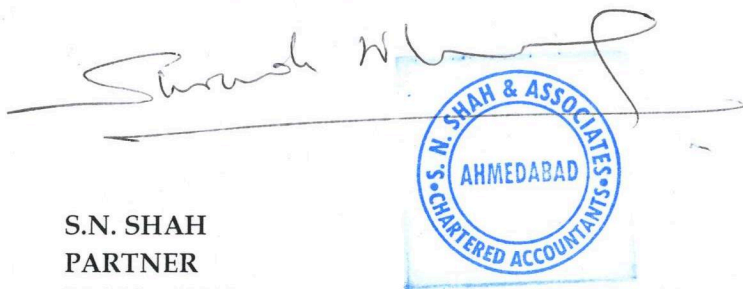 S. N. SHAH & ASSOCIATES
AHMEDABAD
•CHARTERED ACCOUNTANTS•
S.N. SHAH
PARTNER